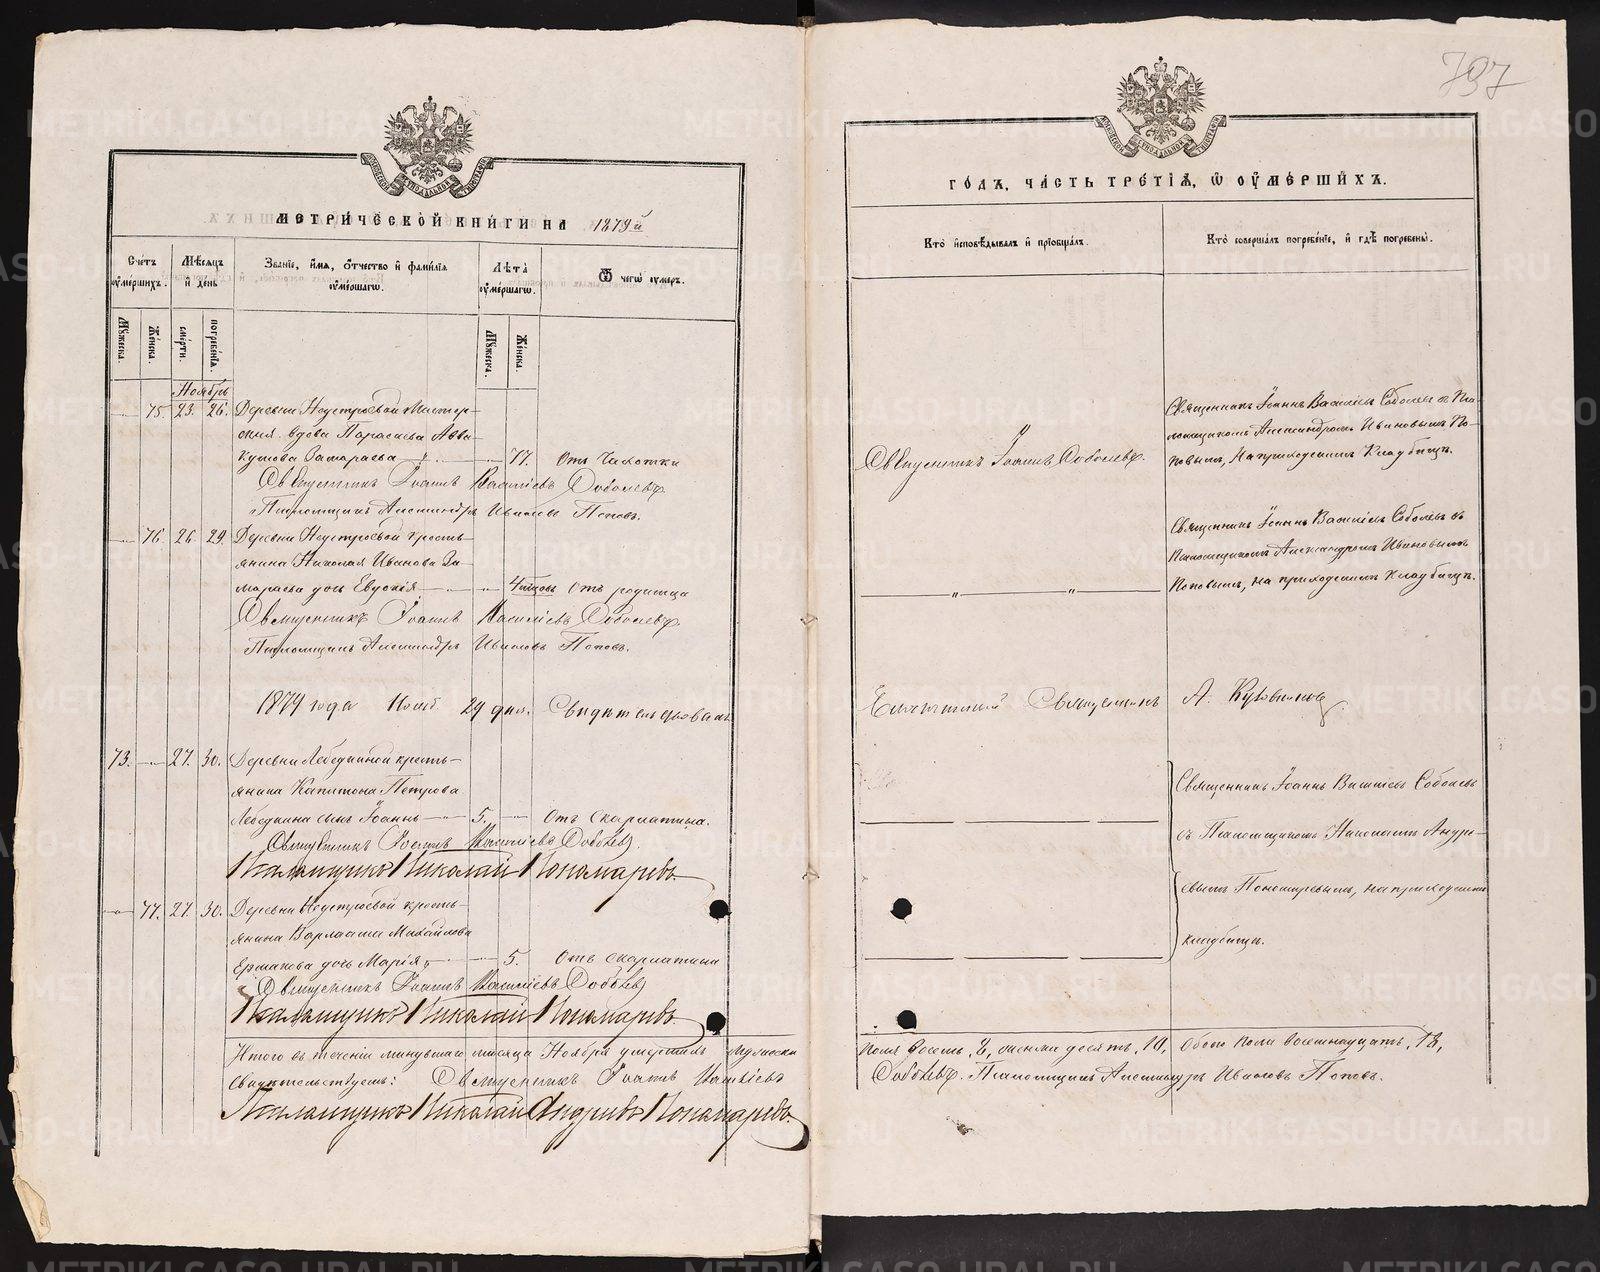 797
МЕТРИЧЕСКОЙ КНИГИ НА 1879й
ГОДЪ, ЧАСТЬ ТРЕТІѦ, Ѡ ОУМЕРШИХЪ.
Счетъ оумершихъ.
Мѣсяцъ и день
Званіе, имя, отчество и фамилія оумершагѡ.
Лѣта оумершагѡ.
Ѿ чегѡ оумеръ.
Кто исповѣдывалъ и пріобщалъ.
Кто совершалъ погребеніе, и гдѣ погребены.
Мужеска.
Женска.
смерти.
погребенія.
Мужеска.
Женска.
Ноябрь
75. 23. 26. Деревни Неустроевой мастер-
ская вдова Параскева Авва-
кумова Замараева 77. Отъ Чахотки
Священникъ Іоаннъ Василіевъ Соболевъ
Псаломщикъ Александръ Ивановъ Поповъ.
Священникъ Іоаннъ Соболевъ.
Священникъ Іоаннъ Василіевъ Соболевъ съ Пса-
ломщикомъ Александромъ Ивановымъ По-
повымъ, На приходскомъ Кладбищѣ.
76. 26. 29. Деревни Неустроевой кресть-
янина Николая Иванова За-
мараева дочь Евдокія 4 мѣсяц. Отъ родимца
Священникъ Іоаннъ Василіевъ Соболевъ
Псаломщикъ Александръ Ивановъ Поповъ.
Священникъ Іоаннъ Василіевъ Соболевъ съ
Псаломщикомъ Александромъ Ивановымъ
Поповымъ, на приходскомъ кладбищѣ.
1879 года Нояб 29 дня. Свидѣтельствовалъ
Священникъ А. Кузовников
73. 27. 30. Деревни Лебедкиной кресть-
янина Капитона Петрова
Лебедкина сынъ Іоаннъ 5. Отъ скарлатина.
Священникъ Іоаннъ Василіевъ Соболевъ.
Псаломщикъ Николай Пономаревъ.
77. 27. 30. Деревни Неустроевой кресть-
янина Варлаама Михайлова
Ермакова дочь Марія 5. Отъ скарлатина
Священникъ Іоаннъ Василіевъ Соболевъ
Псаломщикъ Николай Пономаревъ.
Священникъ Іоаннъ Василіевъ Соболевъ
съ Псаломщикомъ Николаемъ Андре-
евымъ Пономаревымъ, на приходскомъ
кладбищѣ.
Итого въ теченіи минувшаго мѣсяца Ноября умершихъ мужеска пола восемь, 8, женска десять, 10, Обоего пола восемнадцать, 18,
Свидѣтельствуемъ: Священникъ Іоаннъ Василіевъ Соболевъ. Псаломщикъ Александръ Ивановъ Поповъ.
Псаломщикъ Николай Андреевъ Пономаревъ.
METRIKI.GASO-URAL.RU